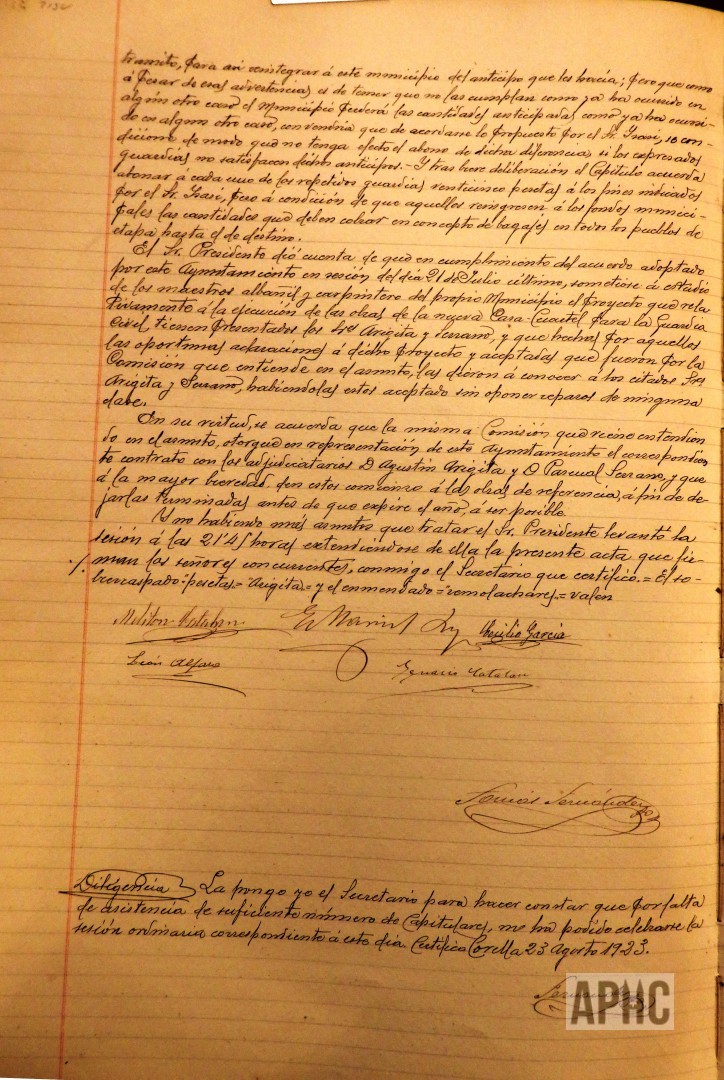 tránsito, para así reintegrar á este municipio del anticipo que les hacía; pero que como
á pesar de esas advertencias es de temer que no las cumplan como ya ha ocurrido en
algún otro caso el Municipio perderá las cantidades anticipadas como ya ha ocurri-
do en algun otro caso, convendría que de acordarse lo propuesto por el Sr. Isasi, se con-
dicione de modo que no tenga efecto el abono de dicha diferencia si los expresados
guardias no satisfacen dichos anticipos.- Y tras breve deliberación el Capítulo acuerda
abonar á cada uno de los repetidos guardias veinticinco pesetas á los fines indicados
por el Sr. Isasi, pero á condición de que aquellos reingresen á los fondos munici-
pales las cantidades que deben cobrar en concepto de bagajes en todos los pueblos de
etapa hasta el de destino.
El Sr. Presidente dió cuenta de que en cumplimiento del acuerdo adoptado
por este Ayuntamiento en sesión del día 21 de Julio último, sometióse á estudio
de los maestros albañil y carpintero del propio Municipio el proyecto que rela
tivamente á la ejecución de las obras de la nueva Casa-Cuartel para la Guardia
Civil, tienen presentados los Sres Arigita y Serrano, y que hechas por aquellos
las oportunas aclaraciones á dicho proyecto y aceptadas que fueron por la
Comisión que entiende en el asunto, las dieron á conocer á los citados Sres
Arigita y Serrano, habiéndolas estos aceptado sin oponer reparos de ninguna
clase.
En su virtud, se acuerda que la misma Comisión que viene entendien
do en el asunto, otorgue en representación de este Ayuntamiento el correspondien
te contrato con los adjudicatarios D. Agustín Arigita y D Pascual Serrano, y que
á la mayor brevedad den estos comienzo á las obras de referencia, á fin de de-
jarlas terminadas antes de que expire el año, á ser posible.
Y no habiendo más asuntos que tratar el Sr. Presidente levantó la
sesión á las 21'45 horas extendiéndose de ella la presente acta que fir-
man los señores concurrentes, conmigo el Secretario que certifico.= El so-
breraspado= pesetas.= Arigita.= y el enmendado = remolachares.= valen
Meliton Catalan
Cecilio García
León Alfaro
Ignacio Catalan
Tomás Fernández
Diligencia La pongo yo el Secretario para hacer constar que por falta
de asistencia de suficiente número de Capitulares, no ha podido celebrarse la
sesión ordinaria correspondiente á este día. Certifico Corella 23 Agosto 1923.
Fernández
APHC